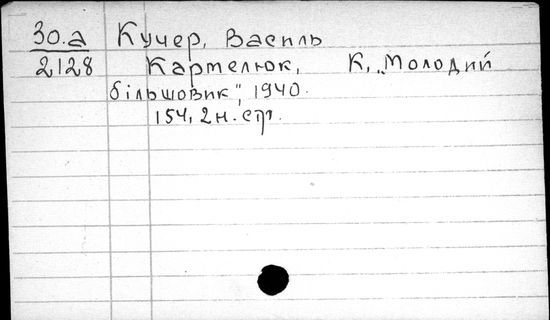 30.а Кучер, Василь
2128 Кармелюк, К, „Молодий
більшовик", 1940.
154, 2 н. стр.